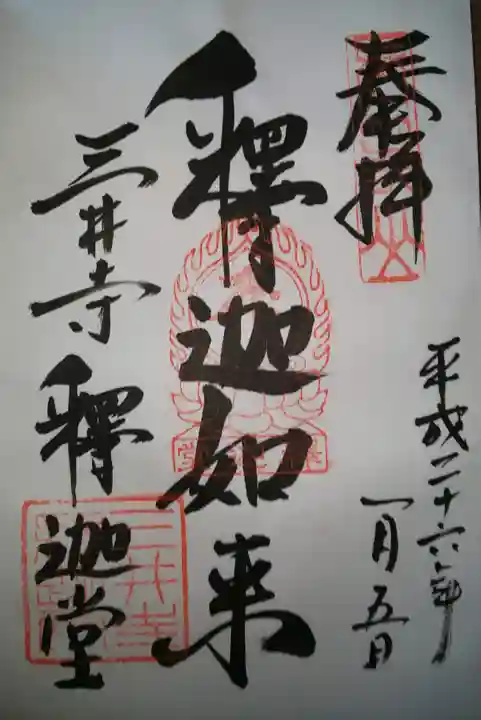 奉拝
平成二十六年
一月五日
釋迦如来
三井寺釋迦堂